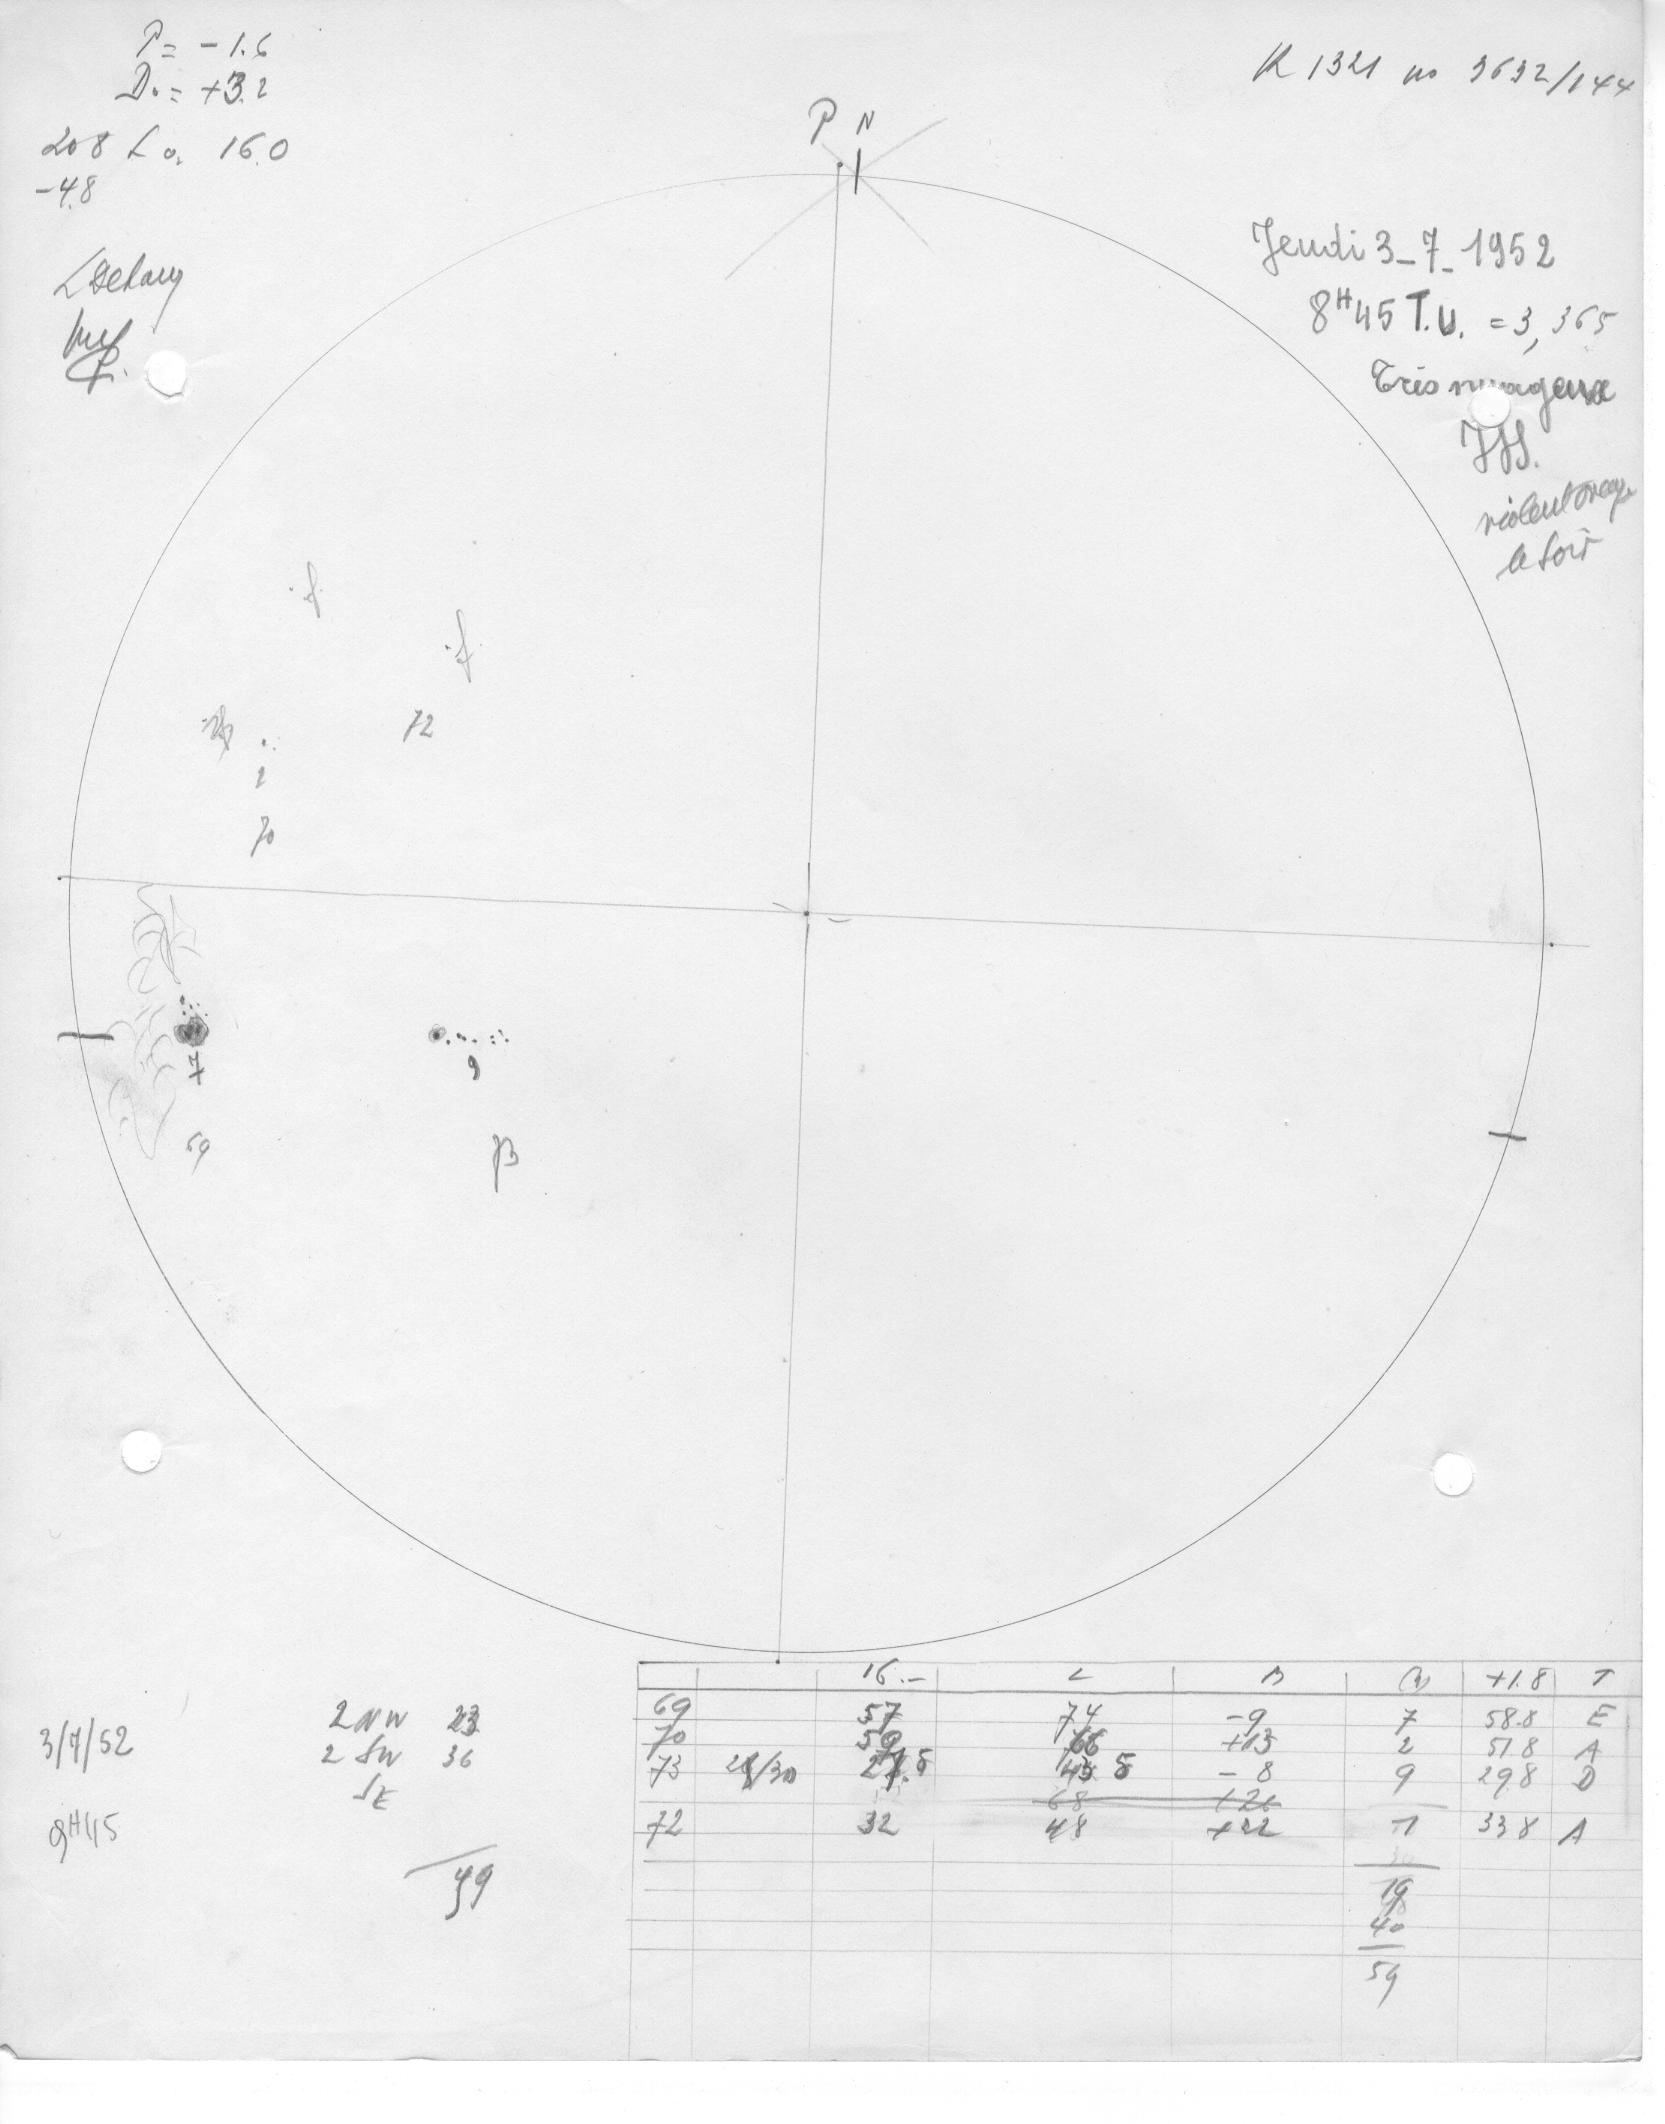 P = -1.6
D. = +3.2
20.8 Lo. 16.0
-4.8
R 1321 no 3632/144
P N
Jeudi 3_7_1952
8H45 T.U. = 3,365
Très nuageux
JJS.
violent orage
le soir
f
f
72
2
70
7
9
69
73
16.- L B +1.8 T
69 57 74 -9 7 58.8 E
70 50 66 +13 2 51.8 A
73 28/30 27.5 43 5 -8 9 29.8 D
68 +26
72 32 48 +22 1 33.8 A
19
40
59
3/7/52
9H45
2 NW 23
2 SW 36
SE
59